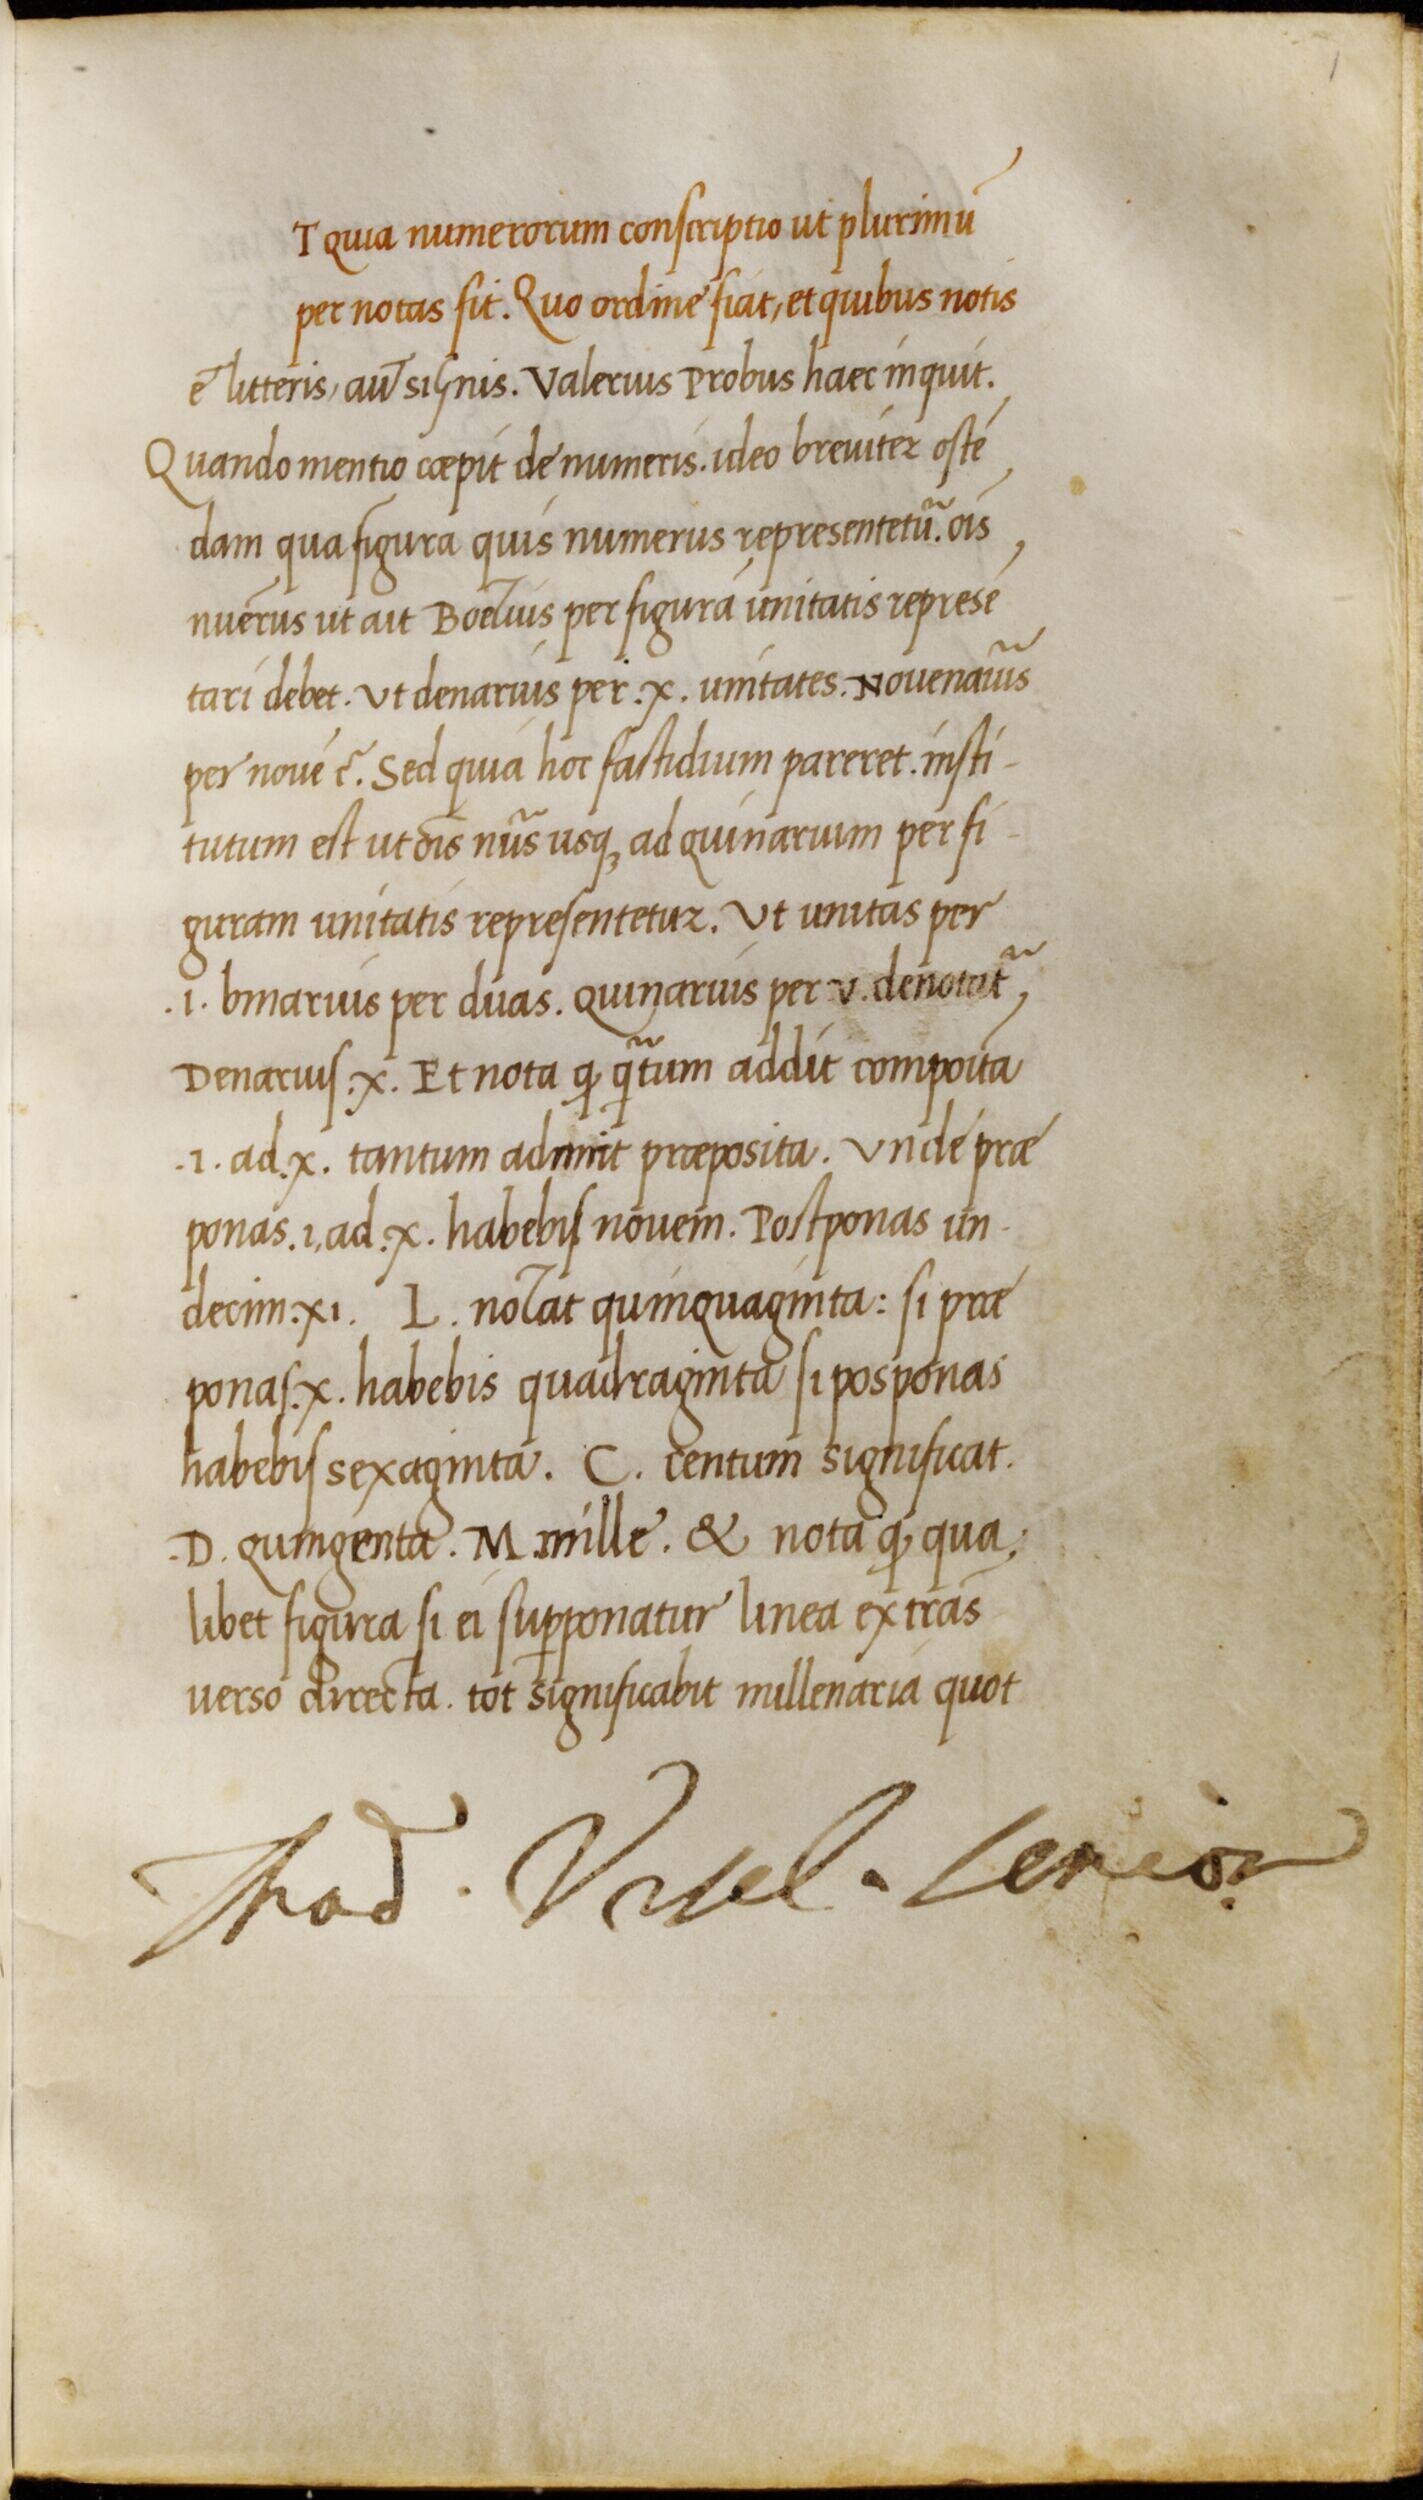 1
T quia numerorum conscriptio ut plurimū
per notas fit. Quo ordine fiat, et quibus notis
e litteris, aut signis. Valerius Probus haec inquit.
Quando mentio cœpit de numeris. ideo breuiter ostē
dam qua figura quis numerus representetur̃. oīs
nūerus ut ait Boetius per figurā unitatis represē
tari debet. Ut denarius per .x. unitates. Nouenariũs
per nouē c̃. Sed quia hoc fastidium pareret. insti-
tutum est ut oīs nũs usq; ad quinarium per fi-
guram unitatis representetur. Ut unitas per
.i. binarius per duas. Quinarius per v. denotat̃
Denarius .x. Et nota q̨ q̃tum addit compoita
.i. ad .x. tantum adimit præposita. Unde præ
ponas .i. ad .x. habebis nouem. Postponas un-
decim .xi. L. notat quinquaginta: si præ
ponas .x. habebis quadraginta si posponas
habebis sexaginta. C. centum significat.
.D. quingenta. M. mille. & nota q̨ qua,
libet figura si ei supponatur linea ex trās
uerso directa. tot significabit millenaria quot